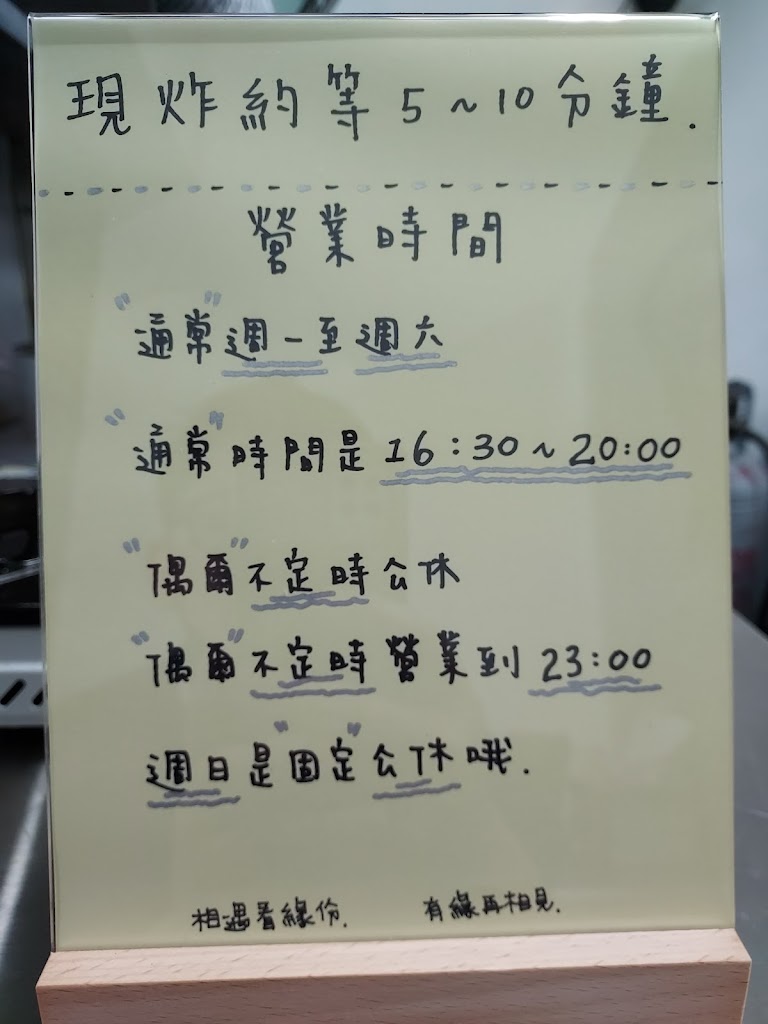 現炸約等5~10分鐘.
營業時間
"通常"週一至週六
"通常"時間是16:30~20:00
"偶爾"不定時公休
"偶爾"不定時營業到23:00
週日是"固定"公休哦.
相遇看緣份. 有緣再相見.